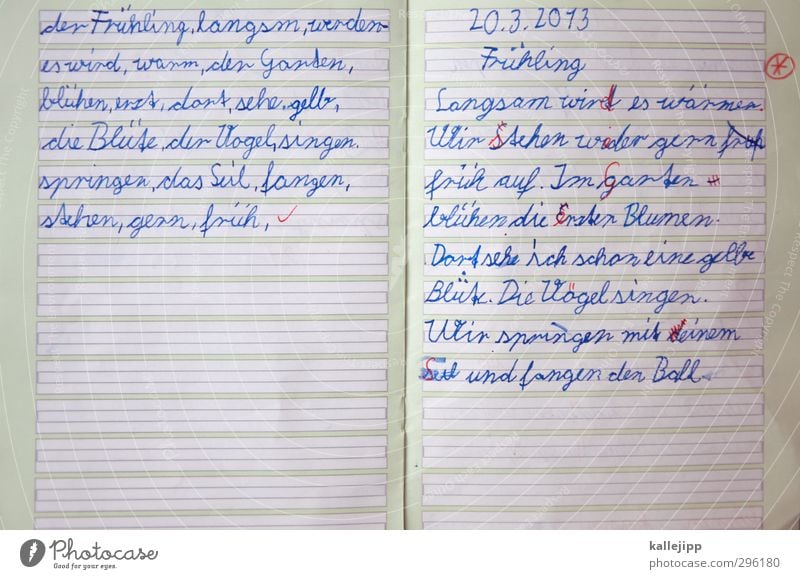 der Frühling, langsm, werden
es wird, warm, den Garten,
blühen, erzt, dort, sehe, gelb,
die Blüte, der Vogel, singen.
springen, das Seil, fangen,
stehen, gern, früh,
20.3.2013
Frühling
Langsam wird es wärmer.
Wir Stehen wider gern früh
früh auf. Im Garten
blühen die Ersten Blumen.
Dort sehe ich schon eine gelbe
Blüte. Die Vögel singen.
Wir springen mit einem
Seil und fangen den Ball.
PHOTOCASE
Good for your eyes.
kallejipp
2296180